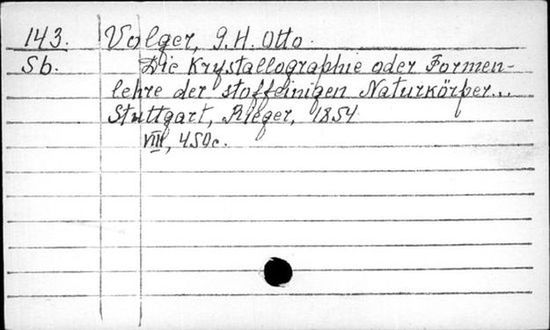 143. Volger, G. H. Otto.
Sb. Die Krystallographie oder Formen-
lehre der stoffeinigen Naturkörper...
Stuttgart, Rieger, 1854
VIII, 450c.